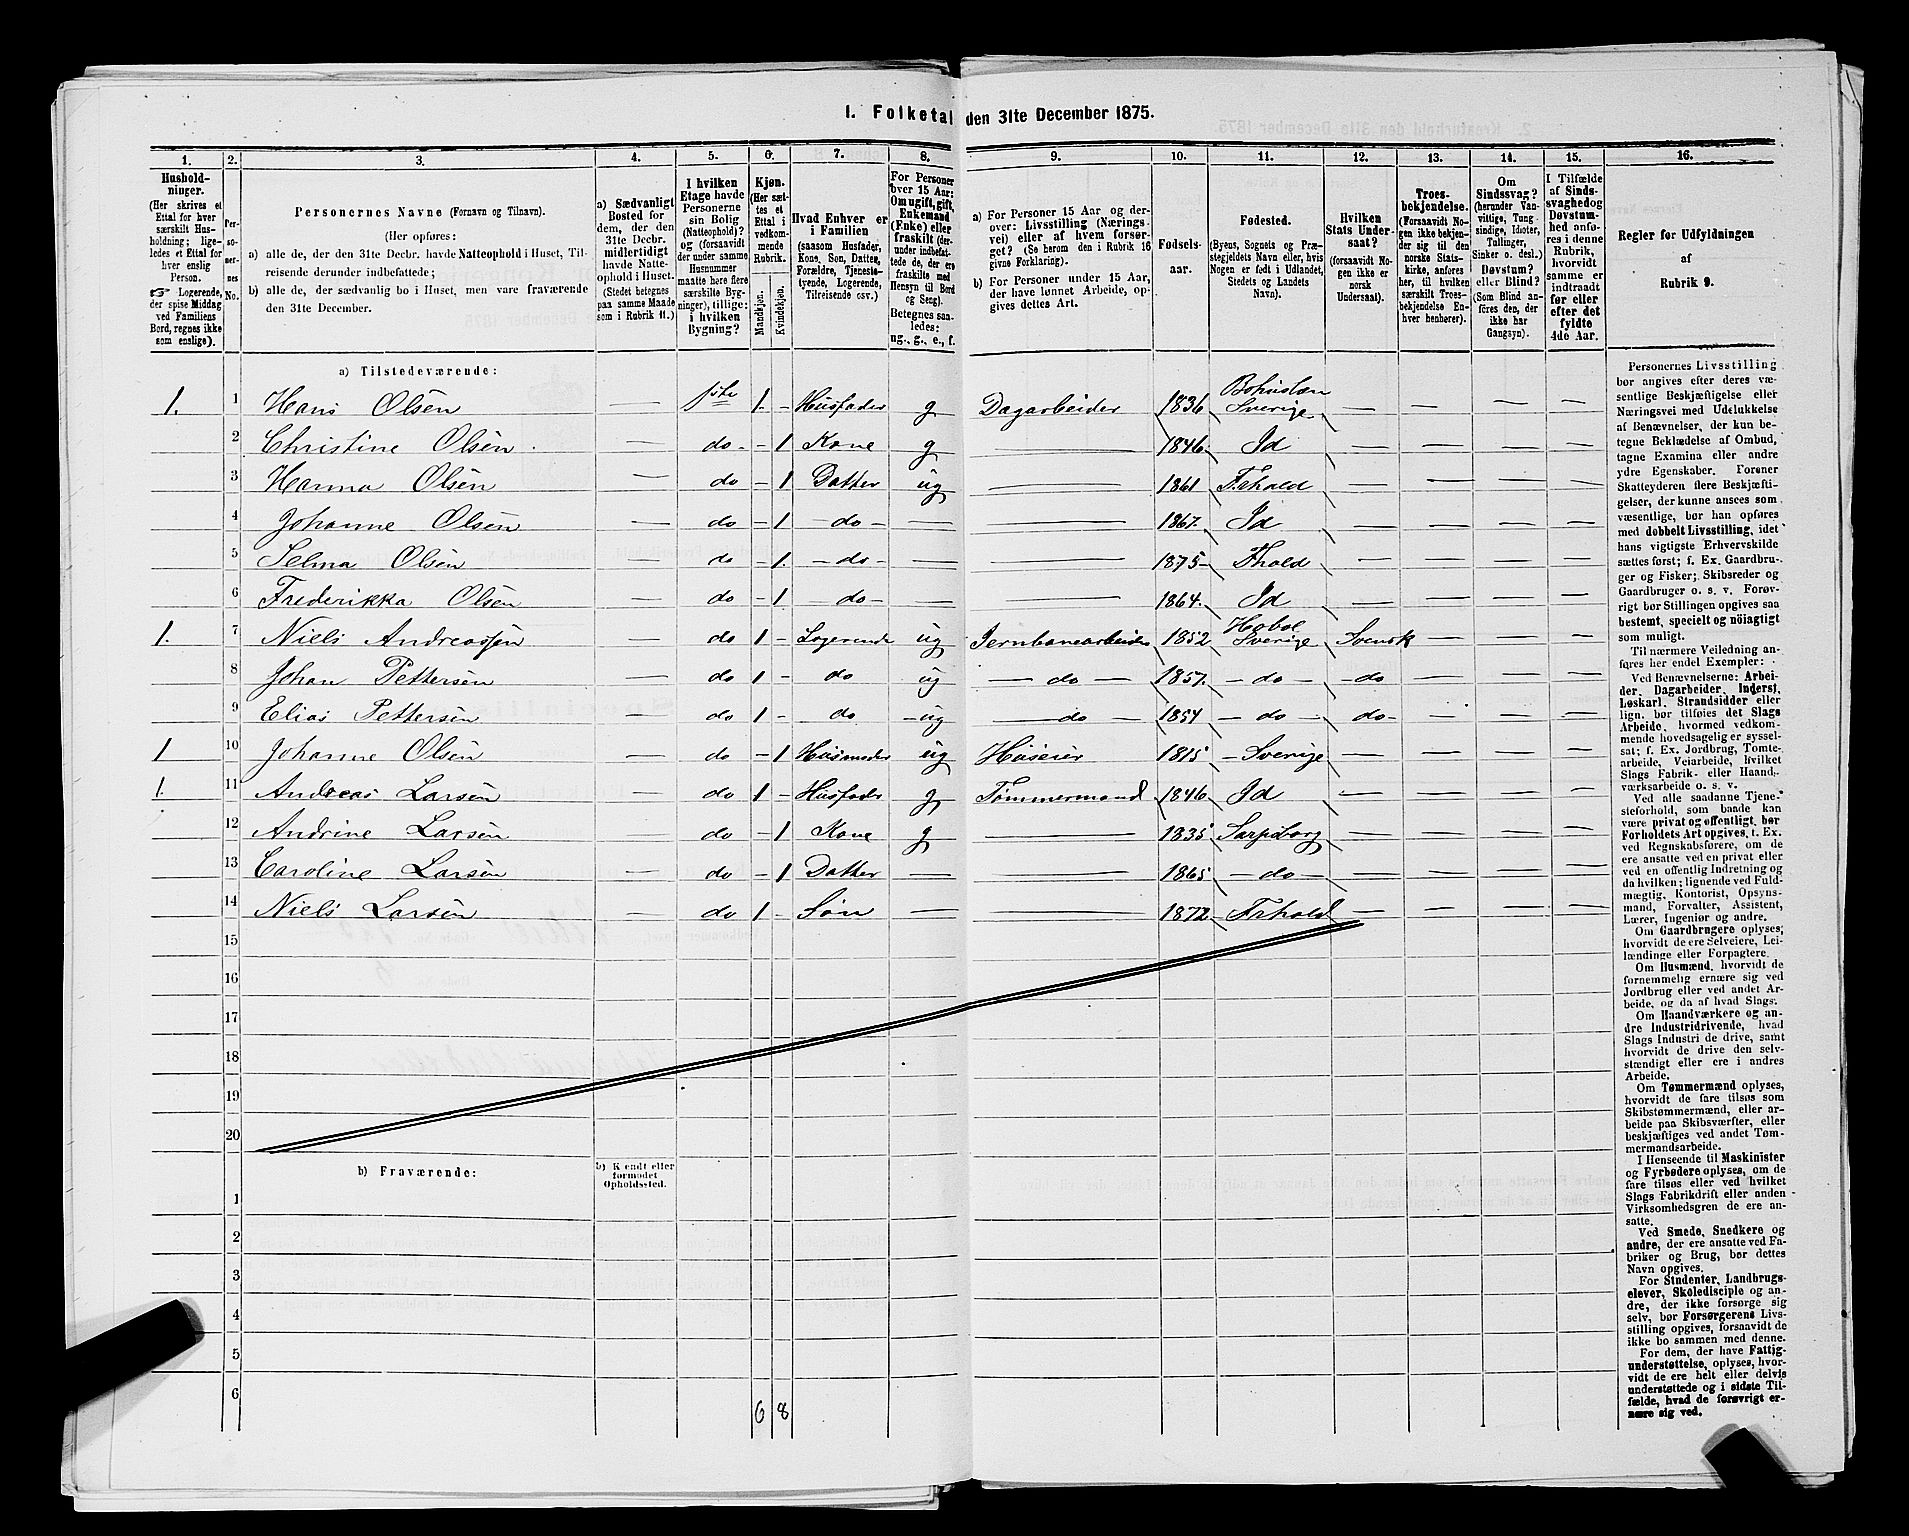 1. Folketal den 31te December 1875.
1. 2. 3. 4. 5. 6. 7. 8. 9. 10. 11. 12. 13. 14. 15. 16.
Hushold-
ninger.
(Her skrives et
Ettal for hver
særskilt Hus-
holdning; lige-
ledes et Ettal for
hver enslig
Person.
☞ Logerende,
der spise Middag
ved Familiens
Bord, regnes ikke
som enslige).
Per-
so-
ner-
nes
No.
Personernes Navne (Fornavn og Tilnavn).
(Her opføres:
a) alle de, der den 31te Decbr. havde Natteophold i Huset, Til-
reisende derunder indbefattede;
b) alle de, der sædvanlig bo i Huset, men vare fraværende
den 31te December.
a) Sædvanligt
Bosted for
dem, der den
31te Decbr.
midlertidigt
havde Natte-
ophold i Huset.
(Stedet betegnes
paa samme Maade
som i Rubrik 11.)
I hvilken
Etage havde
Personerne
sin Bolig
(Natteophold)?
og (forsaavidt
der under samme
Husnummer
maatte høre flere
særskilte Byg-
ninger), tillige:
i hvilken
Bygning?
Kjøn.
(Her sæt-
tes et
Ettal i
vedkom-
mende
Rubrik.
Mandkjøn.
Kvindekjøn.
Hvad Enhver er
i Familien
(saasom Husfader,
Kone, Søn, Datter,
Forældre, Tjeneste-
tyende, Logerende,
Tilreisende osv.)
For Personer
over 15 Aar:
Om ugift, gift,
Enkemand
(Enke) eller
fraskilt (der-
under indbefat-
tede de, der ere
fraskilte med
Hensyn til Bord
og Seng).
Betegnes saa-
ledes:
ug., g., e., f.
a) For Personer 15 Aar og der-
over: Livsstilling (Nærings-
vei) eller af hvem forsør-
get? (Se herom den i Rubrik 16
givne Forklaring).
b) For Personer under 15 Aar,
der have lønnet Arbeide, op-
gives dettes Art.
Fødsels-
aar.
Fødested.
(Byens, Sognets og Præ-
stegjeldets Navn eller, hvis
Nogen er født i Udlandet,
Stedets og Landets
Navn).
Hvilken
Stats Under-
saat?
(forsaavidt No-
gen ikke er
norsk
Undersaat).
Troes-
bekjendelse.
(Forsaavidt No-
gen ikke bekjen-
der sig til den
norske Stats-
kirke, anføres
her, til hvilken
særskilt Troes-
bekjendelse En-
hver henhører).
Om
Sindssvag?
(herunder Van-
vittige, Tung-
sindige, Idioter,
Tullinger,
Sinker o. desl.)
Døvstum?
eller Blind?
(Som Blind an-
føres den, der
ikke har
Gangsyn).
I Tilfælde
af Sinds-
svaghed og
Døvstum-
hed anfø-
res i denne
Rubrik,
hvorvidt
samme er
indtraadt
før eller
efter det
fyldte
4de Aar.
Regler for Udfyldningen
af
Rubrik 9.
a) Tilstedeværende:
1. 1 Hans Olsen — 1ste 1. - Husfader g Dagarbeider 1836 Bohuslæn Sverige — — — —
2 Christine Olsen — do - 1 Kone g — 1846 Id — — — —
3 Hanna Olsen — do - 1 Datter ug — 1861 F.hald — — — —
4 Johanne Olsen — do - 1 - do - — — 1867. Id — — — —
5 Selma Olsen do - 1. - do - — — 1875 Fhald — — — —
6 Frederikka Olsen — do - 1 do - — — 1864. Id — — — —
1. 7 Niels Andreassen — do 1 - Logerende ug Jernbanearbeider 1852 Sverige Svensk — — —
8 Johan Pettersen — do 1 - do ug — do — 1857. - do - - do — — —
9 Elias Pettersen — do 1 - do - ug — do — 1854 - do - do - — — —
1 10 Johanne Olsen — do - 1 Husmoder ug Huseier 1815 - Sverige — — — —
1. 11 Andreas Larsen — do 1 - Husfader g Tømmermand 1846 Id — — — —
12 Andrine Larsen — do - 1 Kone g — 1835 Sarpsborg — — — —
13 Caroline Larsen — do - 1 Datter — — 1865 - do - — — — —
14 Niels Larsen — do 1 - Søn — — 1872 Frhald — — — —
15
16
17
18
19
20
b) Fraværende:
b) Kjendt eller
formodet
Opholdssted.
1
2
3
4
5
6
6 8
Personernes Livsstilling
bør angives efter deres væ-
sentlige Beskjæftigelse eller
Næringsvei med Udelukkelse
af Benævnelser, der kun be-
tegne Beklædelse af Ombud,
tagne Examina eller andre
ydre Egenskaber. Forener
Skatteyderen flere Beskjæfti-
gelser, der kunne ansees som
væsentlige, bør han opføres
med dobbelt Livsstilling, idet
hans vigtigste Erhvervskilde
sættes først; f. Ex. Gaardbru-
ger og Fisker; Skibsreder og
Gaardbruger o. s. v. Forøv-
rigt bør Stillingen opgives saa
bestemt, specielt og nøiagtigt
som muligt.
Til nærmere Veiledning an-
føres her endel Exempler:
Ved Benævnelserne: Arbei-
der, Dagarbeider, Inderst,
Løskarl, Strandsidder eller
lign. bør tilføies det Slags
Arbeide, hvormed vedkom-
mende hovedsagelig er syssel-
sat; f. Ex. Jordbrug, Tomte-
arbeide, Veiarbeide, hvilket
Slags Fabrik- eller Haand-
værksarbeide o. s. v.
Ved alle saadanne Tjene-
steforhold, som baade kan
være privat og offentligt, bør
Forholdets Art opgives, t. Ex.
ved Regnskabsførere, om de
ere ansatte ved en privat eller
ved en offentlig Indretning og
da hvilken; lignende ved Fuld-
mægtig, Kontorist, Opsyns-
mand, Forvalter, Assistent,
Lærer, Ingeniør og andre.
Om Gaardbrugere oplyses,
hvorvidt de ere Selveiere, Lei-
lændinge eller Forpagtere.
Om Husmænd, hvorvidt de
fornemmelig ernære sig ved
Jordbrug eller ved andet Ar-
beide, og da af hvad Slags.
Om Haandværkere og an-
dre Industridrivende, hvad
Slags Industri de drive, samt
hvorvidt de drive den selv-
stændigt eller ere i andres
Arbeide.
Om Tømmermænd oplyses,
hvorvidt de fare tilsøs som
Skibstømmermænd, eller ar-
beide paa Skibsværfter, eller
beskjæftiges ved andet Tøm-
mermandsarbeide.
I Henseende til Maskinister
og Fyrbødere oplyses, om de
fare tilsøs eller ved hvilket
Slags Fabrikdrift eller anden
Virksomhedsgren de ere an-
satte.
Ved Smede, Snedkere og
andre, der ere ansatte ved Fa-
briker og Brug, bør dettes
Navn opgives.
For Studenter, Landbrugs-
elever, Skoledisciple og an-
dre, der ikke forsørge sig
selv, bør Forsørgerens Livs-
stilling opgives, forsaavidt de
ikke bo sammen med denne.
For dem, der have Fattig-
understøttelse, oplyses, hvor-
vidt de ere helt eller delvis
understøttede og i sidste Til-
fælde, hvad de forøvrigt er-
nære sig ved.